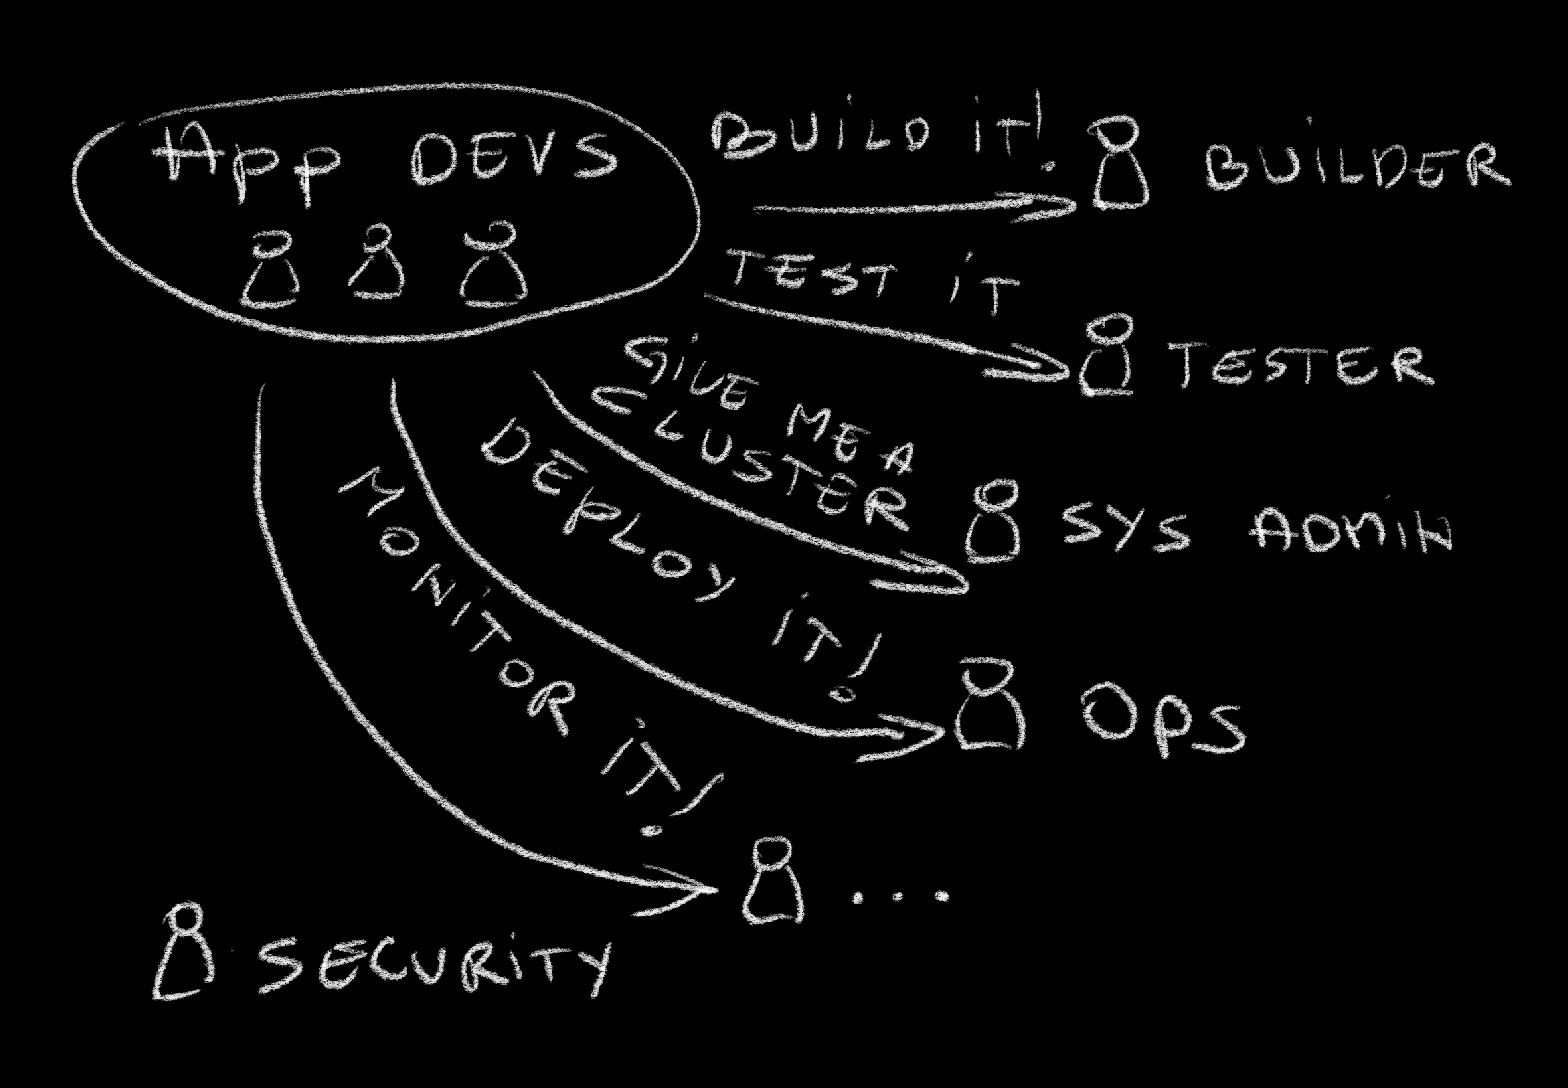 App DEVS
BUiLD iT!
BUiLDER
TEST iT
TESTER
GiVE ME A
CLUSTER
SYS ADMiN
DEPLOY iT!
OPS
MONiTOR iT!
...
SECURiTY